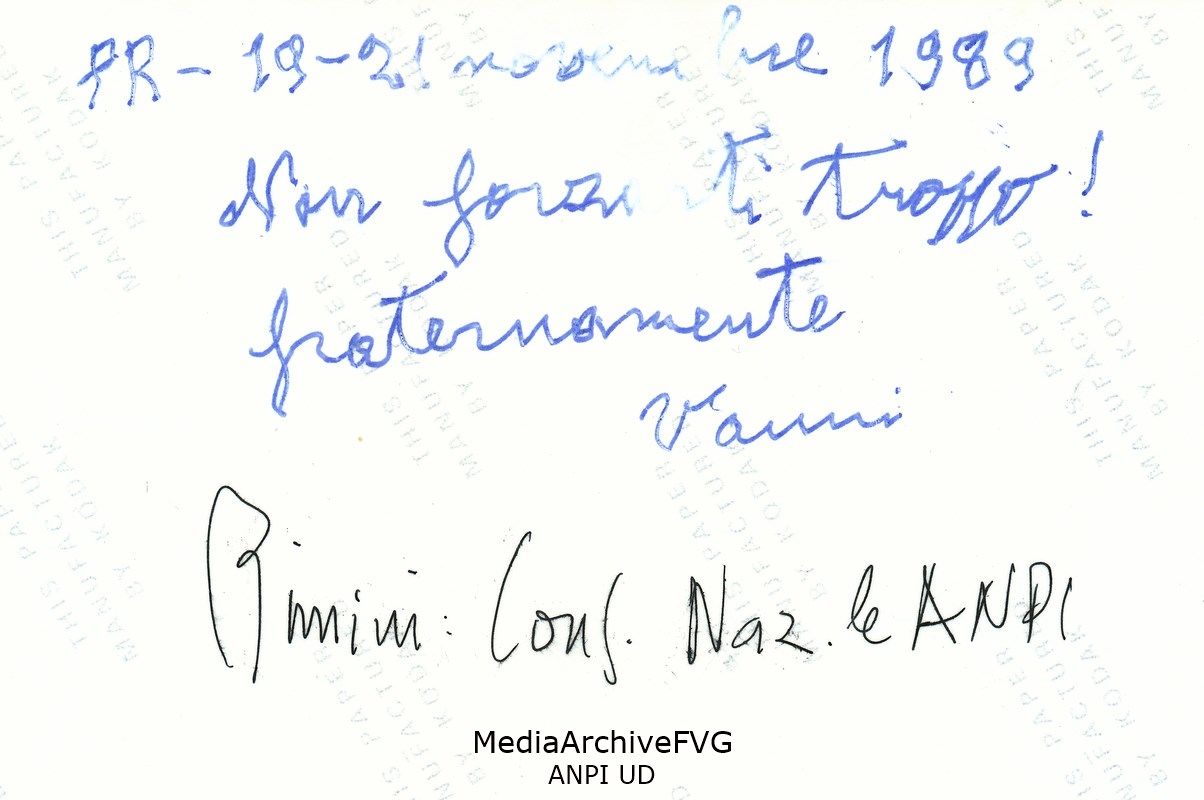 PR - 19-21 novembre 1989
Non forzarti troppo!
fraternamente
Vanni
Rimini: Conf. Naz.le ANPI
MediaArchiveFVG
ANPI UD
THIS PAPER
MANUFACTURED
BY KODAK